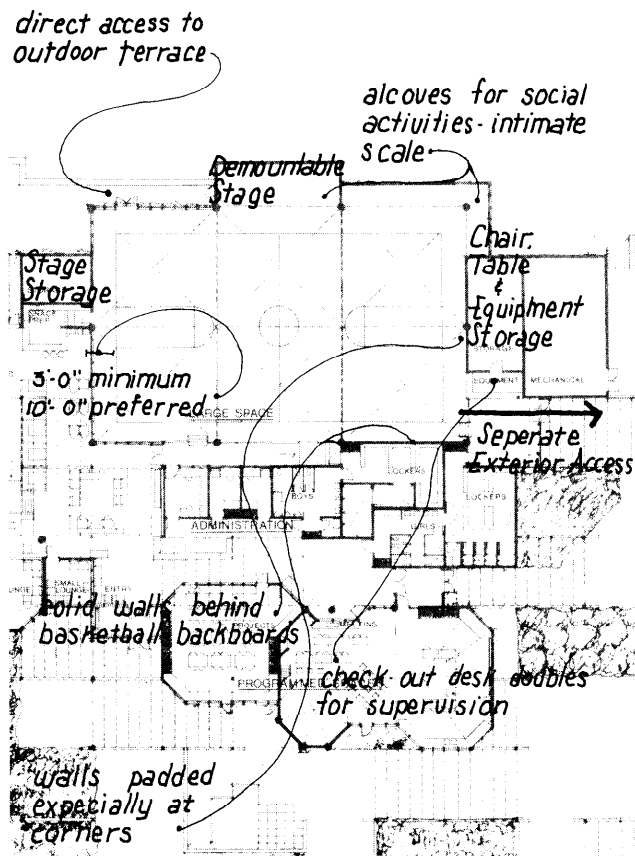 direct access to
outdoor terrace
alcoves for social
activities - intimate
scale
Demountable
Stage
Chair,
Table
&
Equipment
Storage
Stage
Storage
STORAGE
EQUIPMENT
MECHANICAL
3'-0" minimum
10'-0" preferred
LARGE SPACE
Seperate
Exterior Access
LOCKERS
BOYS
LOCKERS
ADMINISTRATION
GIRLS
SMALL
LOUNGE
LOUNGE
ENTRY
solid walls behind
basketball backboards
PROJECTS
check-out desk doubles
for supervision
walls padded
expecially at
corners